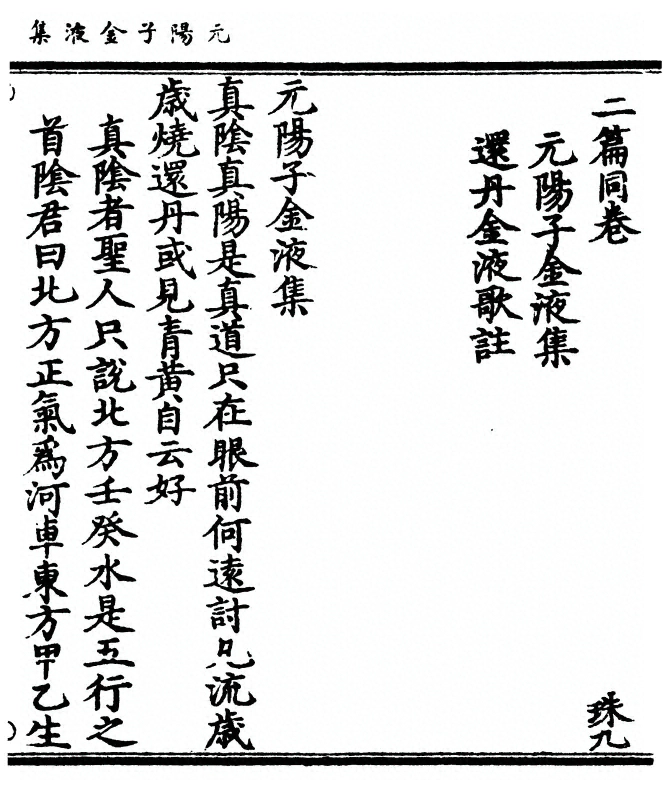 元陽子金液集
二篇同卷
珠九
元陽子金液集
還丹金液歌註
元陽子金液集
真陰真陽是真道只在眼前何遠討凡流歲
歲燒還丹或見青黃自云好
真陰者聖人只說北方壬癸水是五行之
首陰君曰北方正氣為河車東方甲乙生